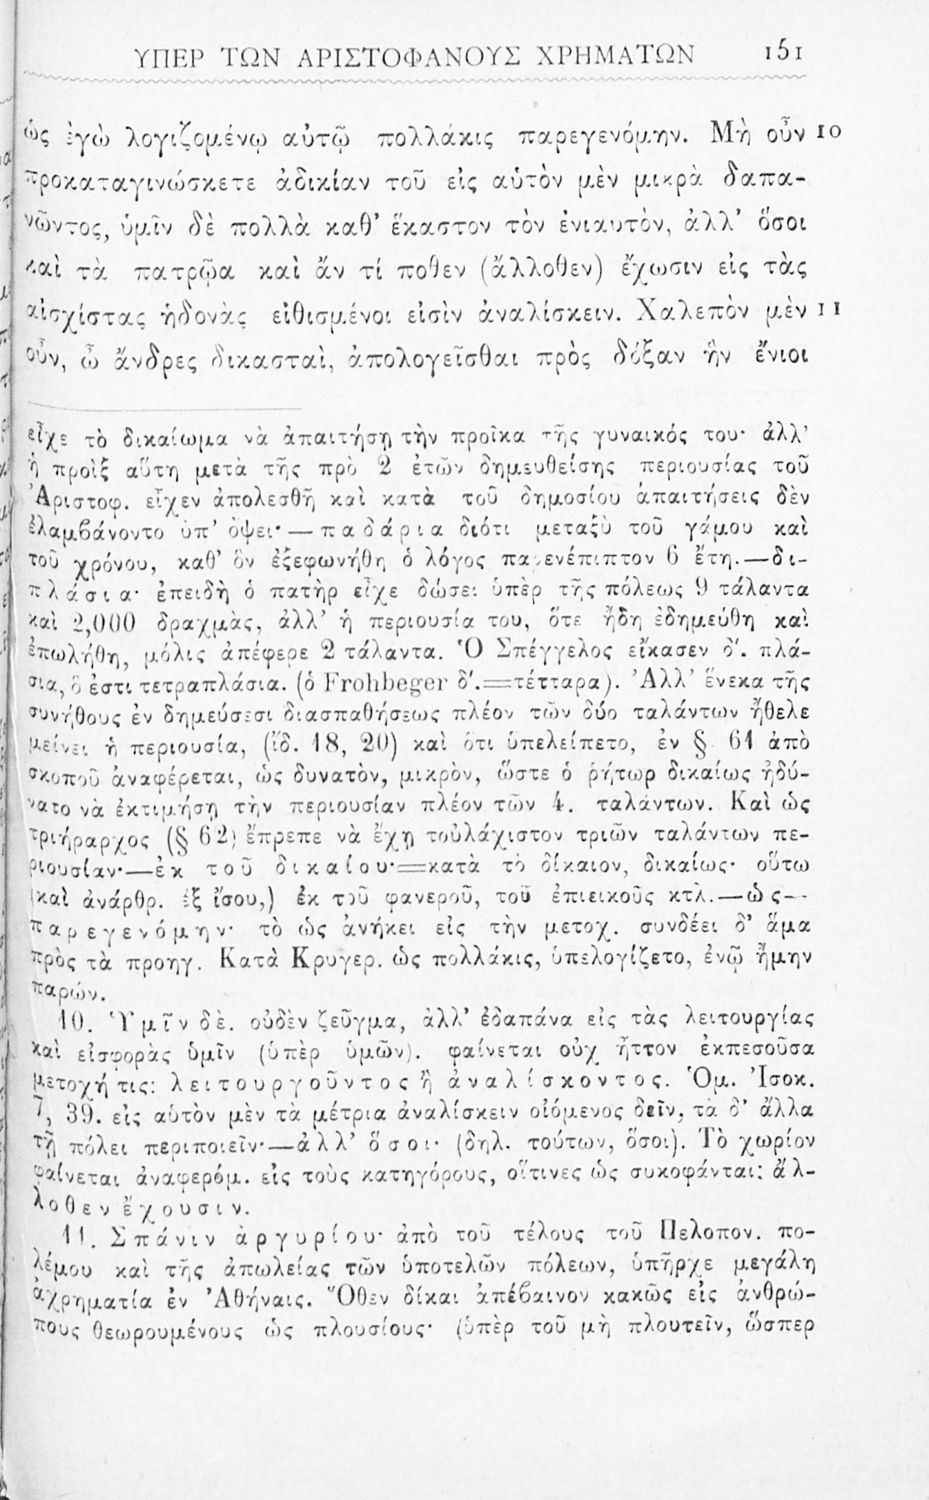 ΥΠΕΡ ΤΩΝ ΑΡΙΣΤΟΦΑΝΟΥΣ ΧΡΗΜΑΤΩΝ 151
ὡς ἐγὼ λογιζομένῳ αὐτῷ πολλάκις παρεγενόμην. Μὴ οὖν 10
προκαταγινώσκετε ἀδικίαν τοῦ εἰς αὑτὸν μὲν μικρὰ δαπα-
νῶντος, ὑμῖν δὲ πολλὰ καθ’ ἕκαστον τὸν ἐνιαυτὸν, ἀλλ’ ὅσοι
καὶ τὰ πατρῷα καὶ ἄν τί ποθεν (ἄλλοθεν) ἔχωσιν εἰς τὰς
αἰσχίστας ἡδονὰς εἰθισμένοι εἰσὶν ἀναλίσκειν. Χαλεπὸν μὲν 11
οὖν, ὦ ἄνδρες δικασταὶ, ἀπολογεῖσθαι πρὸς δόξαν ἣν ἔνιοι
εἶχε τὸ δικαίωμα νὰ ἀπαιτήσῃ τὴν προῖκα τῆς γυναικός του· ἀλλ’
ἡ προὶξ αὕτη μετὰ τῆς πρὸ 2 ἐτῶν δημευθείσης περιουσίας τοῦ
Ἀριστοφ. εἶχεν ἀπολεσθῆ καὶ κατὰ τοῦ δημοσίου ἀπαιτήσεις δὲν
ἐλαμβάνοντο ὑπ’ ὄψει· — παδάρια διότι μεταξὺ τοῦ γάμου καὶ
τοῦ χρόνου, καθ’ ὃν ἐξεφωνήθη ὁ λόγος παρενέπιπτον 6 ἔτη.—δι-
πλάσια· ἐπειδὴ ὁ πατὴρ εἶχε δώσει ὑπὲρ τῆς πόλεως 9 τάλαντα
καὶ 2,000 δραχμὰς, ἀλλ’ ἡ περιουσία του, ὅτε ἤδη ἐδημεύθη καὶ
ἐπωλήθη, μόλις ἀπέφερε 2 τάλαντα. Ὁ Σπέγγελος εἴκασεν δ΄. πλά-
σια, ὅ ἐστι τετραπλάσια. (ὁ Frohbeger δ΄.=τέτταρα). Ἀλλ’ ἕνεκα τῆς
συνήθους ἐν δημεύσεσι διασπαθήσεως πλέον τῶν δύο ταλάντων ἤθελε
μείνει ἡ περιουσία, (ἴδ. 18, 20) καὶ ὅτι ὑπελείπετο, ἐν § 61 ἀπὸ
σκοποῦ ἀναφέρεται, ὡς δυνατὸν, μικρὸν, ὥστε ὁ ῥήτωρ δικαίως ἠδύ-
νατο νὰ ἐκτιμήσῃ τὴν περιουσίαν πλέον τῶν 4. ταλάντων. Καὶ ὡς
τριήραρχος (§ 62) ἔπρεπε νὰ ἔχῃ τοὐλάχιστον τριῶν ταλάντων πε-
ριουσίαν·—ἐκ τοῦ δικαίου·=κατὰ τὸ δίκαιον, δικαίως· οὕτω
(καὶ ἀνάρθρ. ἐξ ἴσου,) ἐκ τοῦ φανεροῦ, τοῦ ἐπιεικοῦς κτλ.—ὡς—
παρεγενόμην· τὸ ὡς ἀνήκει εἰς τὴν μετοχ. συνδέει δ’ ἅμα
πρὸς τὰ προηγ. Κατὰ Κρυγερ. ὡς πολλάκις, ὑπελογίζετο, ἐνῷ ἤμην
παρών.
10. Ὑμῖν δὲ. οὐδὲν ζεῦγμα, ἀλλ’ ἐδαπάνα εἰς τὰς λειτουργίας
καὶ εἰσφορὰς ὑμῖν (ὑπὲρ ὑμῶν). φαίνεται οὐχ ἧττον ἐκπεσοῦσα
μετοχή τις: λειτουργοῦντος ἢ ἀναλίσκοντος. Ὁμ. Ἰσοκ.
7, 39. εἰς αὑτὸν μὲν τὰ μέτρια ἀναλίσκειν οἰόμενος δεῖν, τὰ δ’ ἄλλα
τῇ πόλει περιποιεῖν·—ἀλλ’ ὅσοι· (δηλ. τούτων, ὅσοι). Τὸ χωρίον
φαίνεται ἀναφερόμ. εἰς τοὺς κατηγόρους, οἵτινες ὡς συκοφάνται: ἄλ-
λοθεν ἔχουσιν.
11. Σπάνιν ἀργυρίου· ἀπὸ τοῦ τέλους τοῦ Πελοπον. πο-
λέμου καὶ τῆς ἀπωλείας τῶν ὑποτελῶν πόλεων, ὑπῆρχε μεγάλη
ἀχρηματία ἐν Ἀθήναις. Ὅθεν δίκαι ἀπέβαινον κακῶς εἰς ἀνθρώ-
πους θεωρουμένους ὡς πλουσίους· (ὑπὲρ τοῦ μὴ πλουτεῖν, ὥσπερ